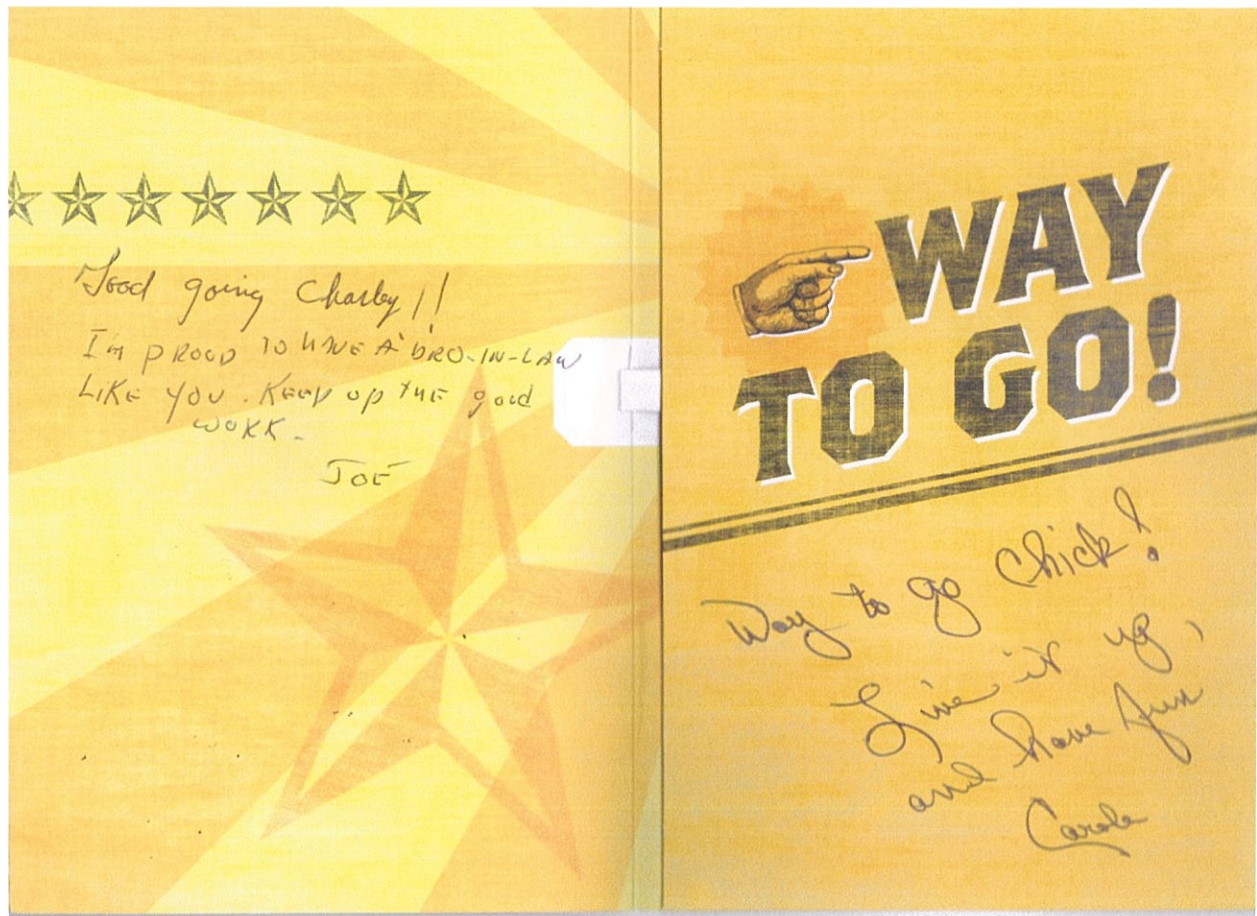 Good going Charley!!
I'm PROUD TO HAVE A BRO-IN-LAW
LIKE YOU. KEEP UP THE good
WORK.
JOE
WAY
TO GO!
Way to go Chick!
Live it up,
and have fun
Carole